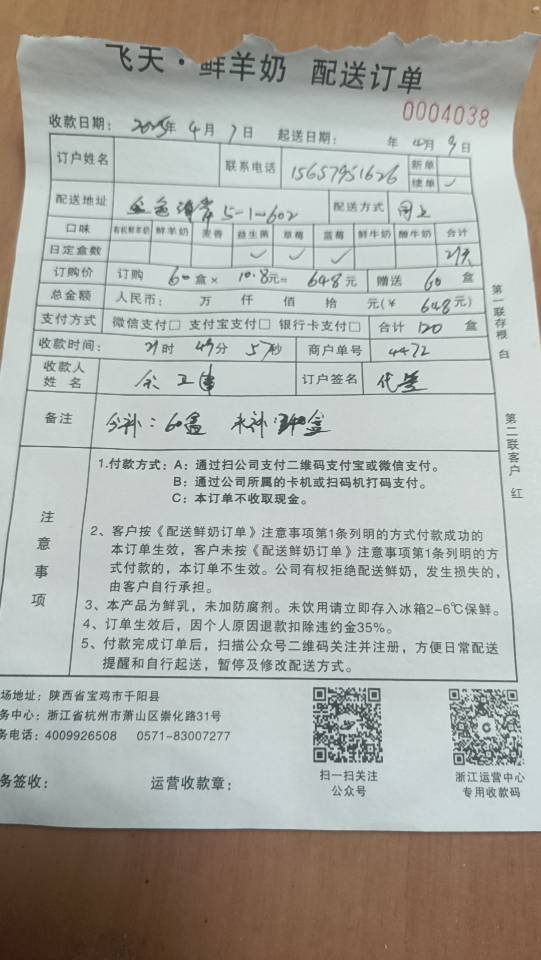 飞天·鲜羊奶 配送订单
0004038
收款日期： 2025年 4月 7日 起送日期： 年 4月 9日
订户姓名 联系电话 15657951626 新单
续单 ✓
配送地址 5-1-602 配送方式 网上
口味 有机鲜羊奶 鲜羊奶 麦香 益生菌 草莓 蓝莓 鲜牛奶 酸牛奶 合计
日定盒数 ✓ ✓ ✓
订购价 订购 60 盒× 10.8元= 648元 赠送 60 盒
总金额 人民币： 万 仟 佰 拾 元(¥ 648元)
支付方式 微信支付□ 支付宝支付□ 银行卡支付□ 合计 120 盒
收款时间： 21时 49分 57秒 商户单号 4472
收款人姓名 订户签名 代签
备注 今补：60盒 未补：盒
第一联存根 白
第二联客户 红
注意事项
1.付款方式：A：通过扫公司支付二维码支付宝或微信支付。
B：通过公司所属的卡机或扫码机打码支付。
C：本订单不收取现金。
2、客户按《配送鲜奶订单》注意事项第1条列明的方式付款成功的
本订单生效，客户未按《配送鲜奶订单》注意事项第1条列明的方
式付款的，本订单不生效。公司有权拒绝配送鲜奶，发生损失的，
由客户自行承担。
3、本产品为鲜乳，未加防腐剂。未饮用请立即存入冰箱2-6℃保鲜。
4、订单生效后，因个人原因退款扣除违约金35%。
5、付款完成订单后，扫描公众号二维码关注并注册，方便日常配送
提醒和自行起送，暂停及修改配送方式。
场地址：陕西省宝鸡市千阳县
务中心：浙江省杭州市萧山区崇化路31号
务电话：4009926508 0571-83007277
务签收： 运营收款章：
扫一扫关注
公众号
浙江运营中心
专用收款码